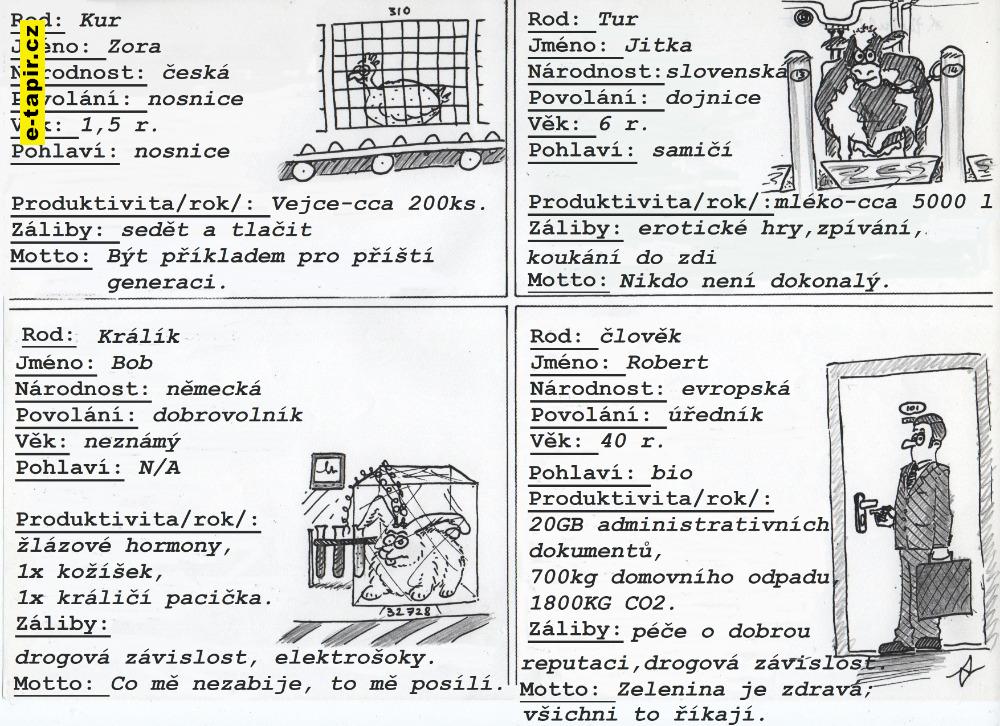 e-tapir.cz
Rod: Kur
Jméno: Zora
Národnost: česká
Povolání: nosnice
Věk: 1,5 r.
Pohlaví: nosnice
310
Produktivita/rok/: Vejce-cca 200ks.
Záliby: sedět a tlačit
Motto: Být příkladem pro příští
generaci.
Rod: Tur
Jméno: Jitka
Národnost:slovenská
Povolání: dojnice
Věk: 6 r.
Pohlaví: samičí
13
14
Produktivita/rok/:mléko-cca 5000 l
Záliby: erotické hry,zpívání,
koukání do zdi
Motto: Nikdo není dokonalý.
Rod: Králík
Jméno: Bob
Národnost: německá
Povolání: dobrovolník
Věk: neznámý
Pohlaví: N/A
Produktivita/rok/:
žlázové hormony,
1x kožíšek,
1x králičí pacička.
Záliby:
drogová závislost, elektrošoky.
Motto: Co mě nezabije, to mě posílí.
32728
Rod: člověk
Jméno: Robert
Národnost: evropská
Povolání: úředník
Věk: 40 r.
Pohlaví: bio
Produktivita/rok/:
20GB administrativních
dokumentů,
700kg domovního odpadu,
1800KG CO2.
Záliby: péče o dobrou
reputaci,drogová závislost.
Motto: Zelenina je zdravá;
všichni to říkají.
101